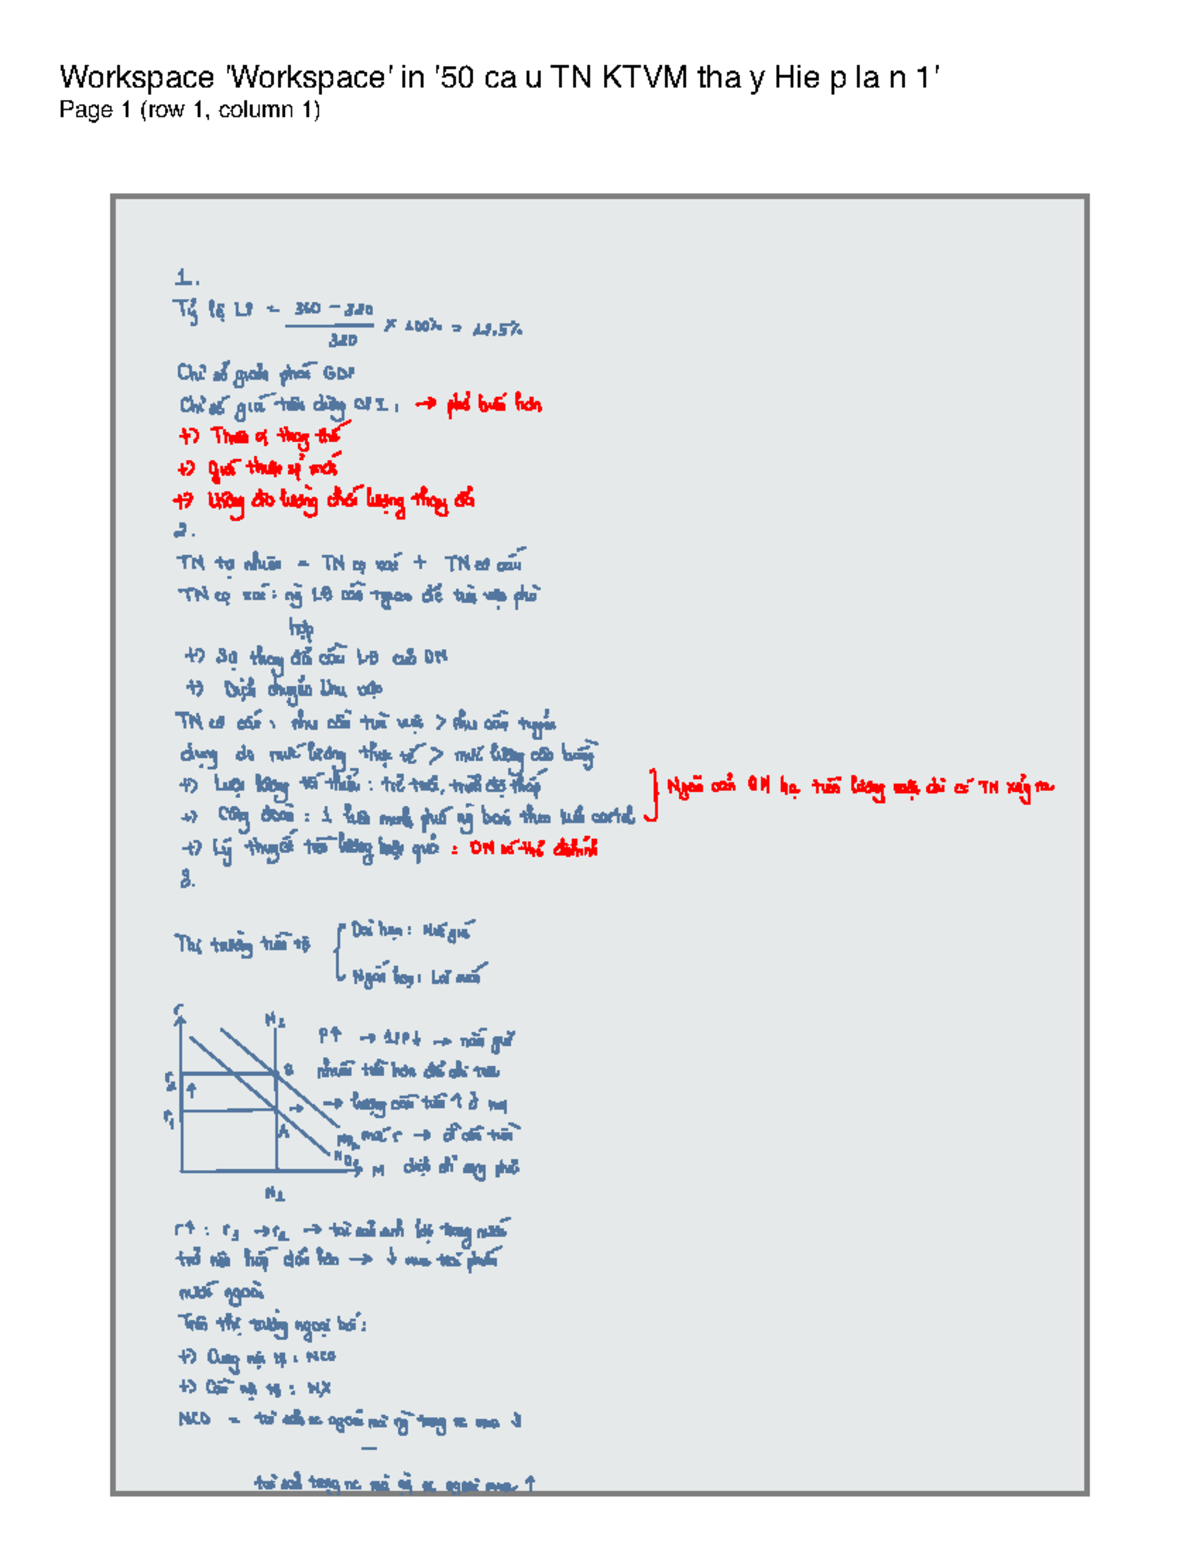 Workspace 'Workspace' in '50 ca u TN KTVM tha y Hie p la n 1'
Page 1 (row 1, column 1)
1.
Tỷ lệ LP = 360 - 320 / 320 × 100% = 12.5%
Chỉ số giảm phát GDP
Chỉ số giá tiêu dùng CPI: → phổ biến hơn
+)
+)
+) không đo lường chất lượng thay đổi
2.
TN tự nhiên = TN cọ xát + TN cơ cấu
TN cọ xát: ng LĐ cần tgian để tìm việc phù
hợp
+) Sự thay đổi cầu LĐ của DN
+) Dịch chuyển khu vực
TN cơ cấu: nhu cầu tìm việc > nhu cầu tuyển
dụng do mức lương thực tế > mức lương cân bằng
+) Luật lương tối thiểu: trẻ tuổi, trình độ thấp
+) Công đoàn: 1 liên minh phía ng bán theo kiểu cartel
Ngăn cản DN hạ tiền lương ngay khi có TN xảy ra
+) Lý thuyết tiền lương hiệu quả: DN
3.
Thị trường tiền tệ
Dài hạn: Mức giá
Ngắn hạn: Lãi suất
r
r2
r1
B
A
M
P↑ → 1/P↓ → nắm giữ
nhiều tiền hơn để chi tiêu
→ lượng cầu tiền ↑ ở mọi
mức r → đ cầu tiền
dịch chuyển phải
r↑: r1 → r2 → tài sản trong nước
trở nên hấp dẫn hơn → ↓ mua trái phiếu
nước ngoài
Trên thị trường ngoại hối:
+) Cung nội tệ: NCO
+) Cầu nội tệ: NX
NCO = tài sản nc ngoài mà ng trong nc mua ↓
-
tài sản trong nc mà ng nc ngoài mua ↑